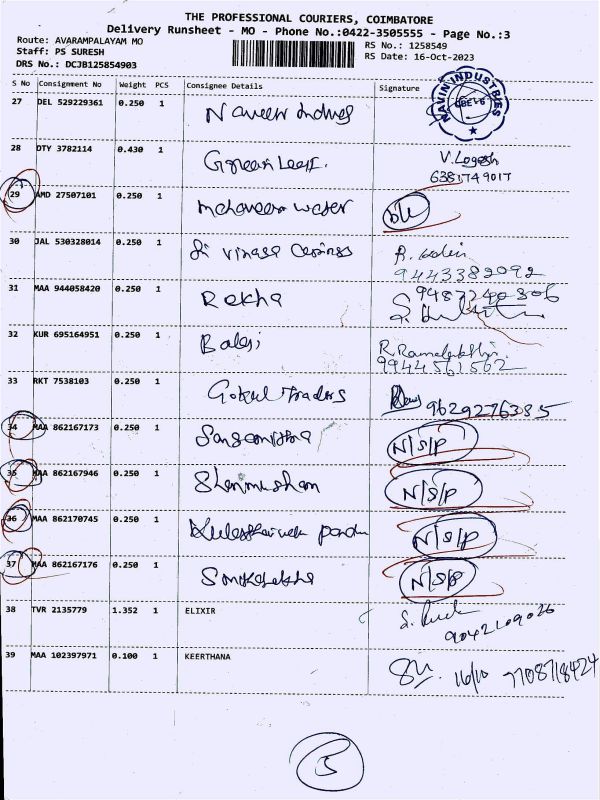 THE PROFESSIONAL COURIERS, COIMBATORE
Delivery Runsheet - MO - Phone No.:0422-3505555 - Page No.:3
Route: AVARAMPALAYAM MO
RS No.: 1258549
Staff: PS SURESH
RS Date: 16-Oct-2023
DRS No.: DCJB125854903
S No Consignment No Weight PCS Consignee Details Signature
NAVIN INDUSTRIES
27 DEL 529229361 0.250 1
28 DTY 3782114 0.430 1 V. Logesh
6381749017
29 AMD 27507101 0.250 1
30 JAL 530328014 0.250 1 Sri
9443382092
31 MAA 944058420 0.250 1 Rekha
9487240306
32 KUR 695164951 0.250 1 Balaji
9944561562
33 RKT 7538103 0.250 1 Gokul Traders 9629276385
34 MAA 862167173 0.250 1 N/S/P
35 MAA 862167946 0.250 1 N/S/P
36 MAA 862170745 0.250 1 N/S/P
37 MAA 862167176 0.250 1 N/S/P
38 TVR 2135779 1.352 1 ELIXIR
39 MAA 102397971 0.100 1 KEERTHANA 16/10 7708718424
5